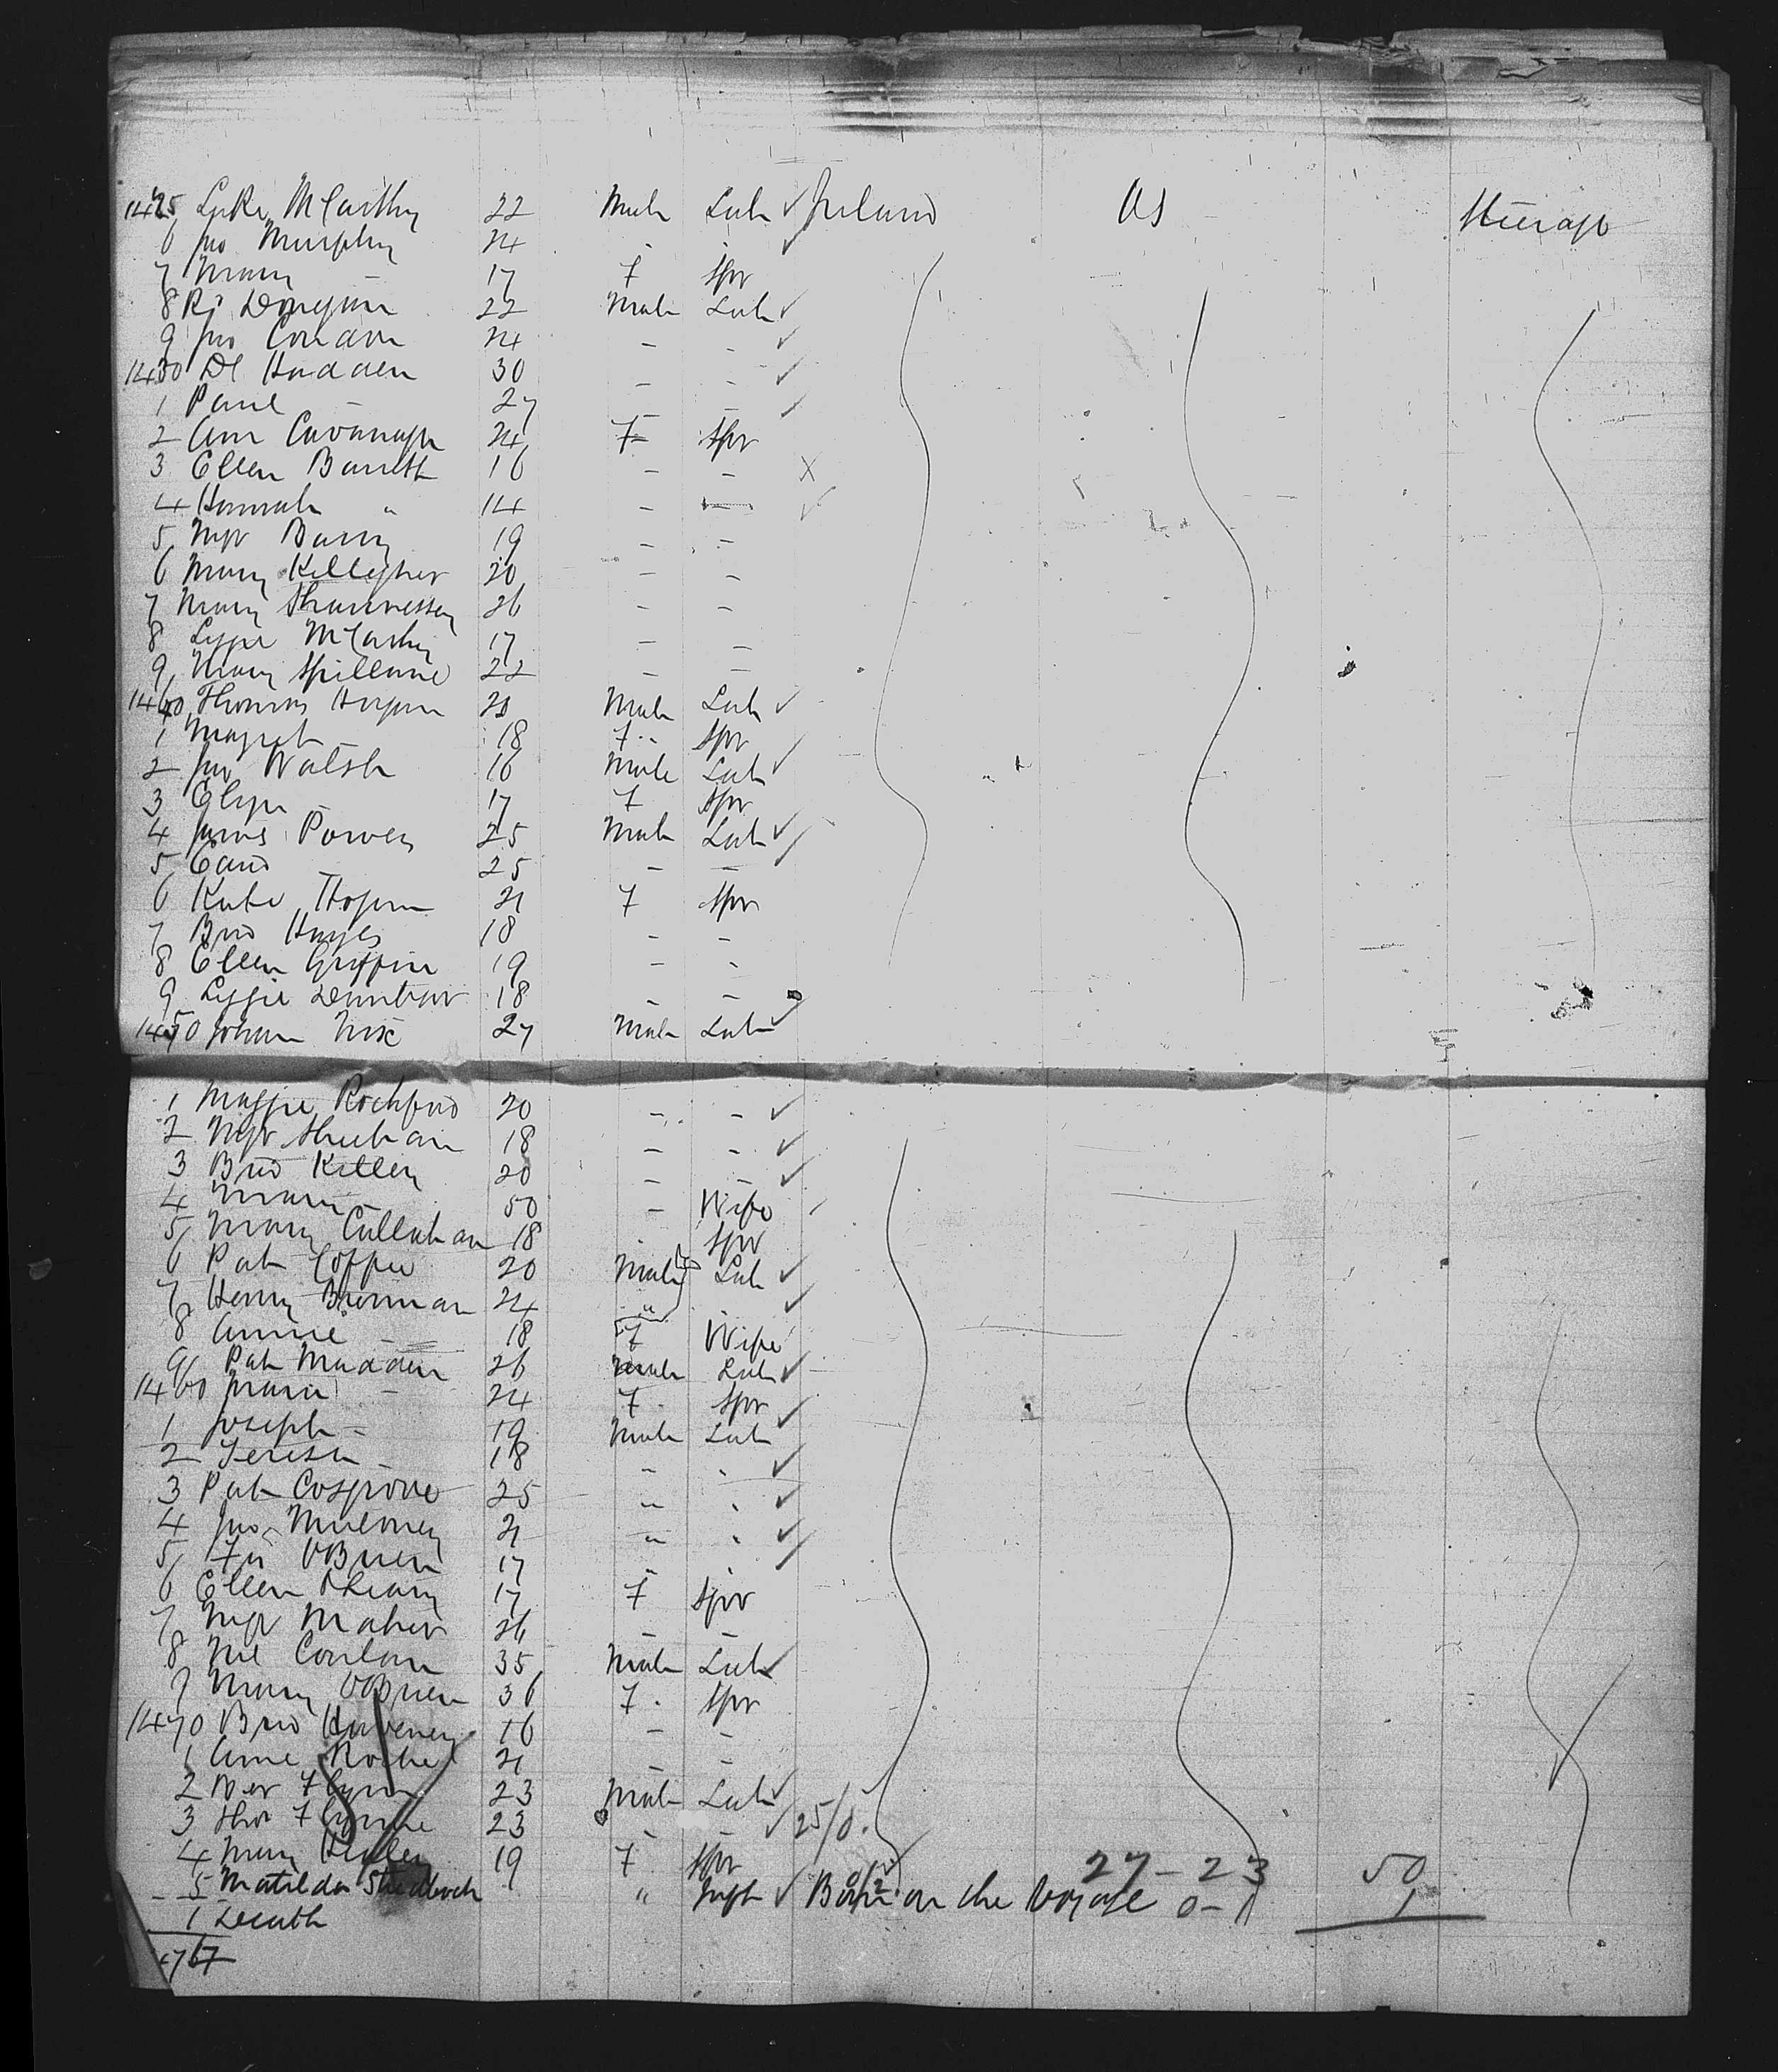 1425 Luke McCarthy 22 Male Lab ✓ Ireland US Steerage
6 Jno Murphy 24 - - ✓
7 Mary - 17 F Spr
8 Rd Donegan 22 Male Lab ✓
9 Jno Condon 24 - - ✓
1430 Dl Hadden 30 - - ✓
1 Paul - 27 - - ✓
2 Ann Cavanagh 24 F Spr
3 Ellen Barrett 16 - - X
4 Hannah " 14 - - ✓
5 Mgr Barry 19 - -
6 Mary Kellegher 20 - -
7 Mary Shaunessy 26 - -
8 Lizzie McCarthy 17 - -
9 Mary Spillane 22 - -
1440 Thomas Hogan 20 Male Lab ✓
1 Magret - 18 F Spr ✓
2 Jno Walsh 16 Male Lab ✓
3 Eliza - 17 F Spr
4 James Power 25 Male Lab ✓
5 - 25 - - ✓
6 Kate Hogan 21 F Spr
7 Brid Hayes 18 - -
8 Ellen Griffin 19 - -
9 Lizzie 18 - -
1450 Johan Nix 27 Male Lab ✓
1 Maggie Rochford 20 - - ✓
2 Mgr Sheehan 18 - - ✓
3 Brid Killey 20 - - ✓
4 Mary - 50 - Wife
5 Mary Callahan 18 Spr
6 Pat Coffee 20 Male Lab ✓
7 Henry Brennan 24 " ✓
8 Annie - 18 F Wife
9 Pat Madden 26 Male Lab ✓
1460 Maria - 24 F Spr
1 Joseph - 19 Male Lab ✓
2 Teresa - 18 - - ✓
3 Pat Cosgrove 25 " " ✓
4 Jno 21 " " ✓
5 OBrien 17 - - ✓
6 Ellen OLeary 17 F Spr
7 Mgr Maher 26 - -
8 Ml Conlan 35 Male Lab ✓
9 Mary OBrien 36 F Spr
1470 Brid 16 - -
1 Anne Roche 21 - -
2 Flynn 23 Male Lab ✓
3 Thos Flynne 23 - - ✓ 25/0
4 Mary Healey 19 F Spr 27-23 50
5 Matilda " Inft ✓ Born on the Voyage 0-1 1
1 Death